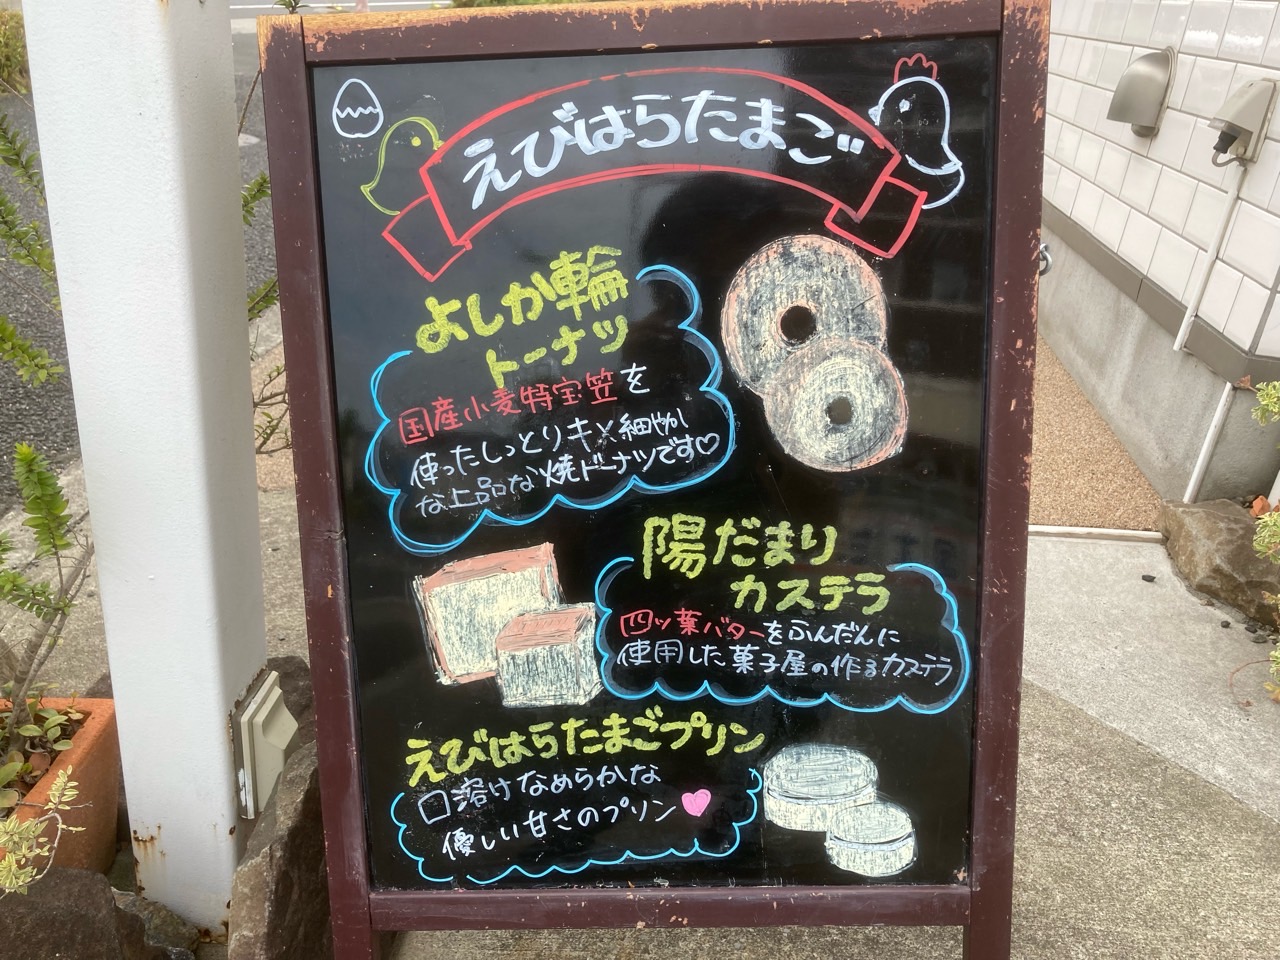 えびはらたまご
よしか輪
トーナツ
国産小麦特宝笠を
使ったしっとりキメ細やか
な上品な焼ドーナツです♡
陽だまり
カステラ
四ツ葉バターをふんだんに
使用した菓子屋の作るカステラ
えびはらたまごプリン
口溶けなめらかな
優しい甘さのプリン